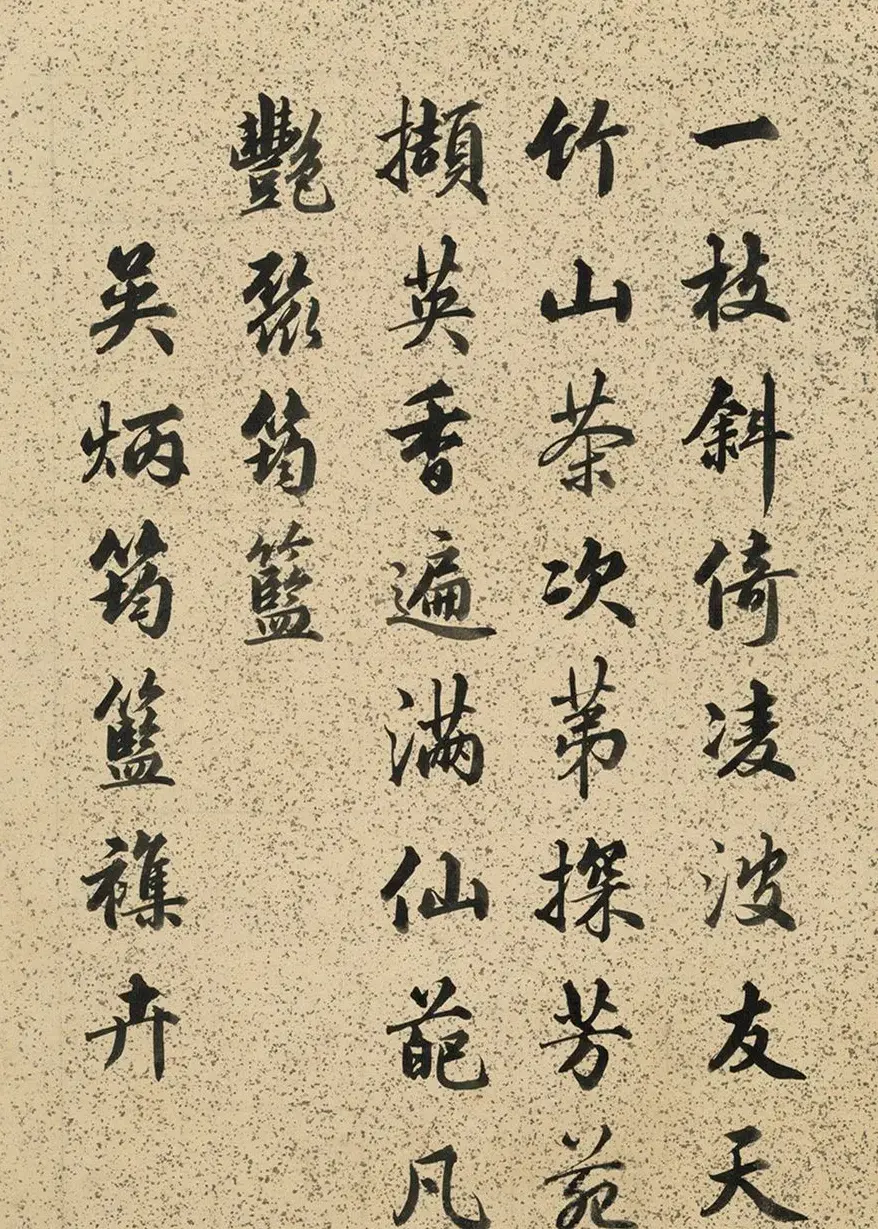 一枝斜倚凌波友天
竹山茶次苐探芳苑
擷英香遍满仙葩凡
豔聚筠籃
吴炳筠籃襍卉